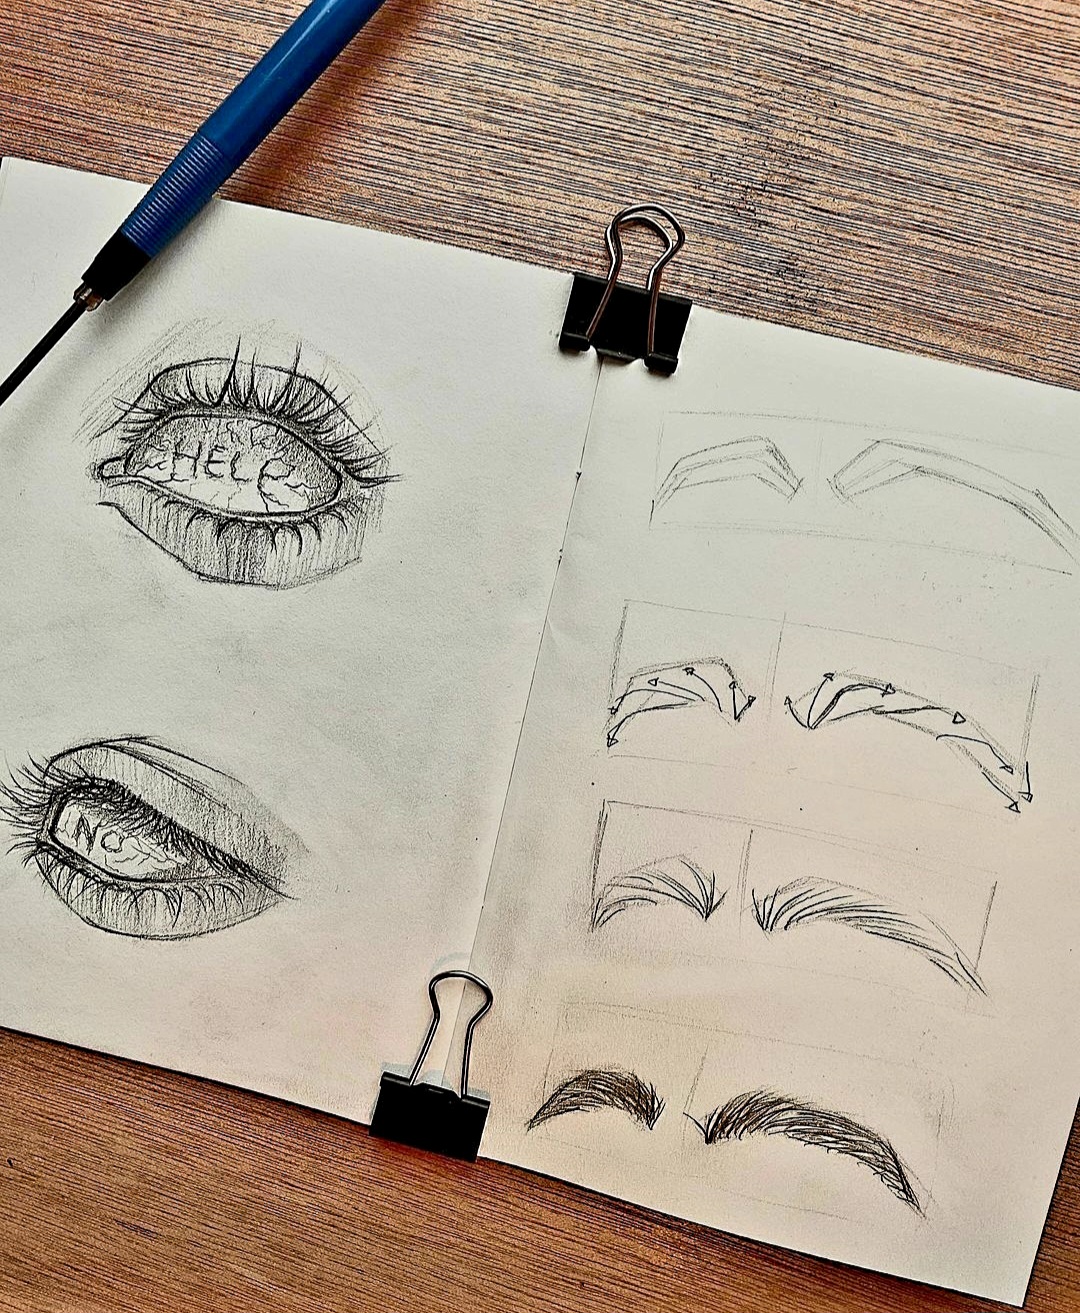 HELP
NO